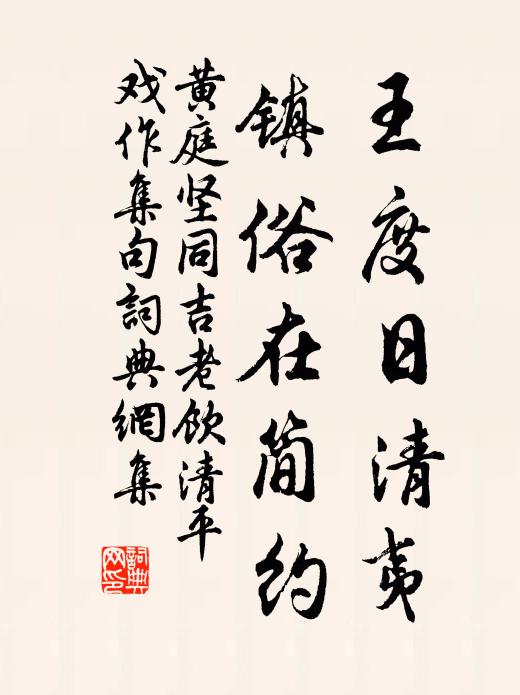 王度日清夷
镇俗在简约
黄庭坚同吉老饮清平
戏作集句詞典網集
詞典网印